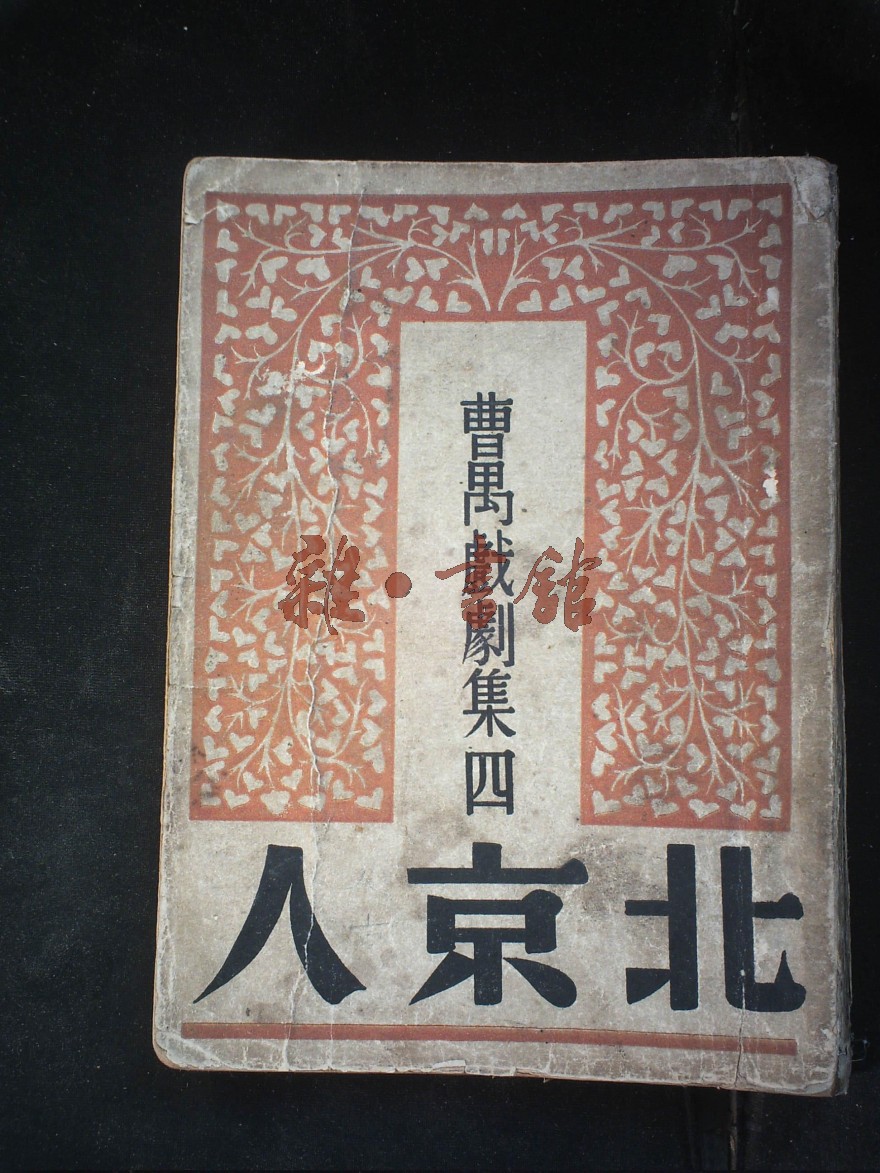 曹禺戲劇集 四
北京人
雜·書館